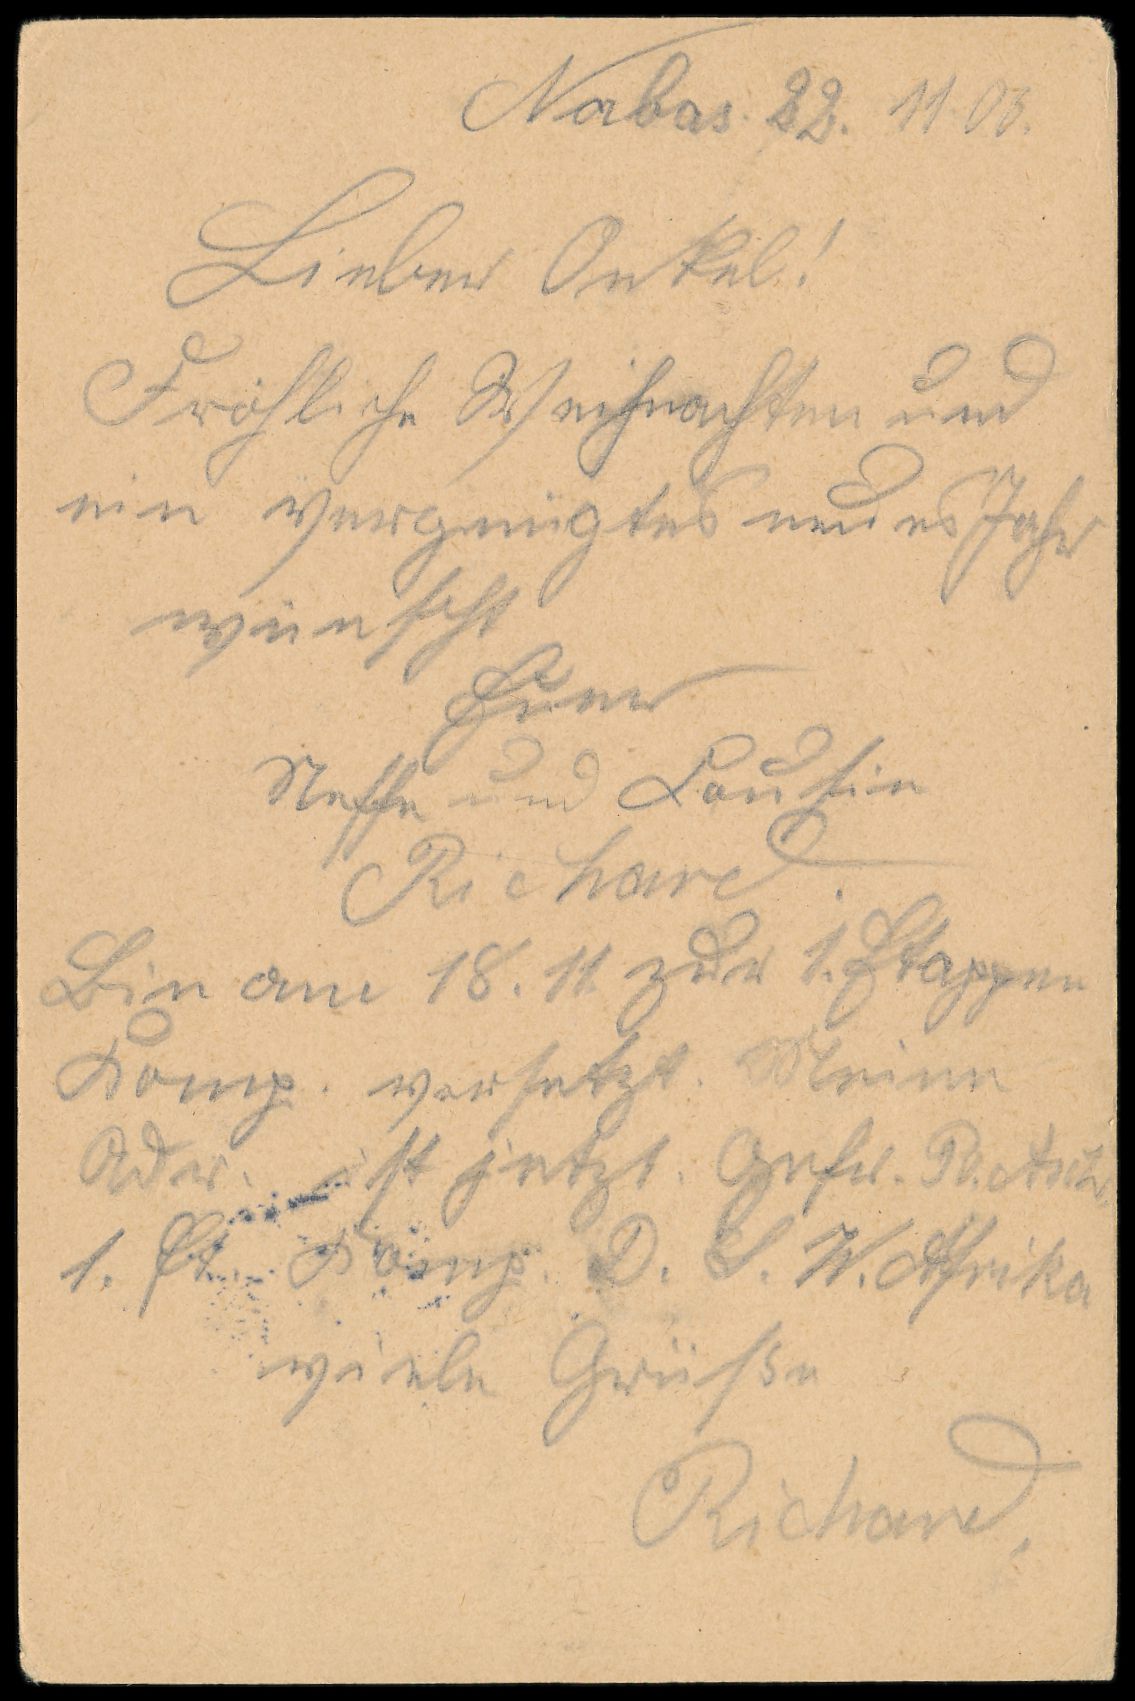 Nabas. 22. 11 05.
Lieber Onkel!
Fröhliche Weihnachten und
ein vergnügtes neues Jahr
wünscht
Euer
Neffe und Cousin
Richard.
Bin am 18. 11 zur 1. Etappen
Komp. versetzt. Meine
Adr. ist jetzt. Gefr. R.
1. Et. Komp. D. S. W. Afrika
viele Grüße
Richard.